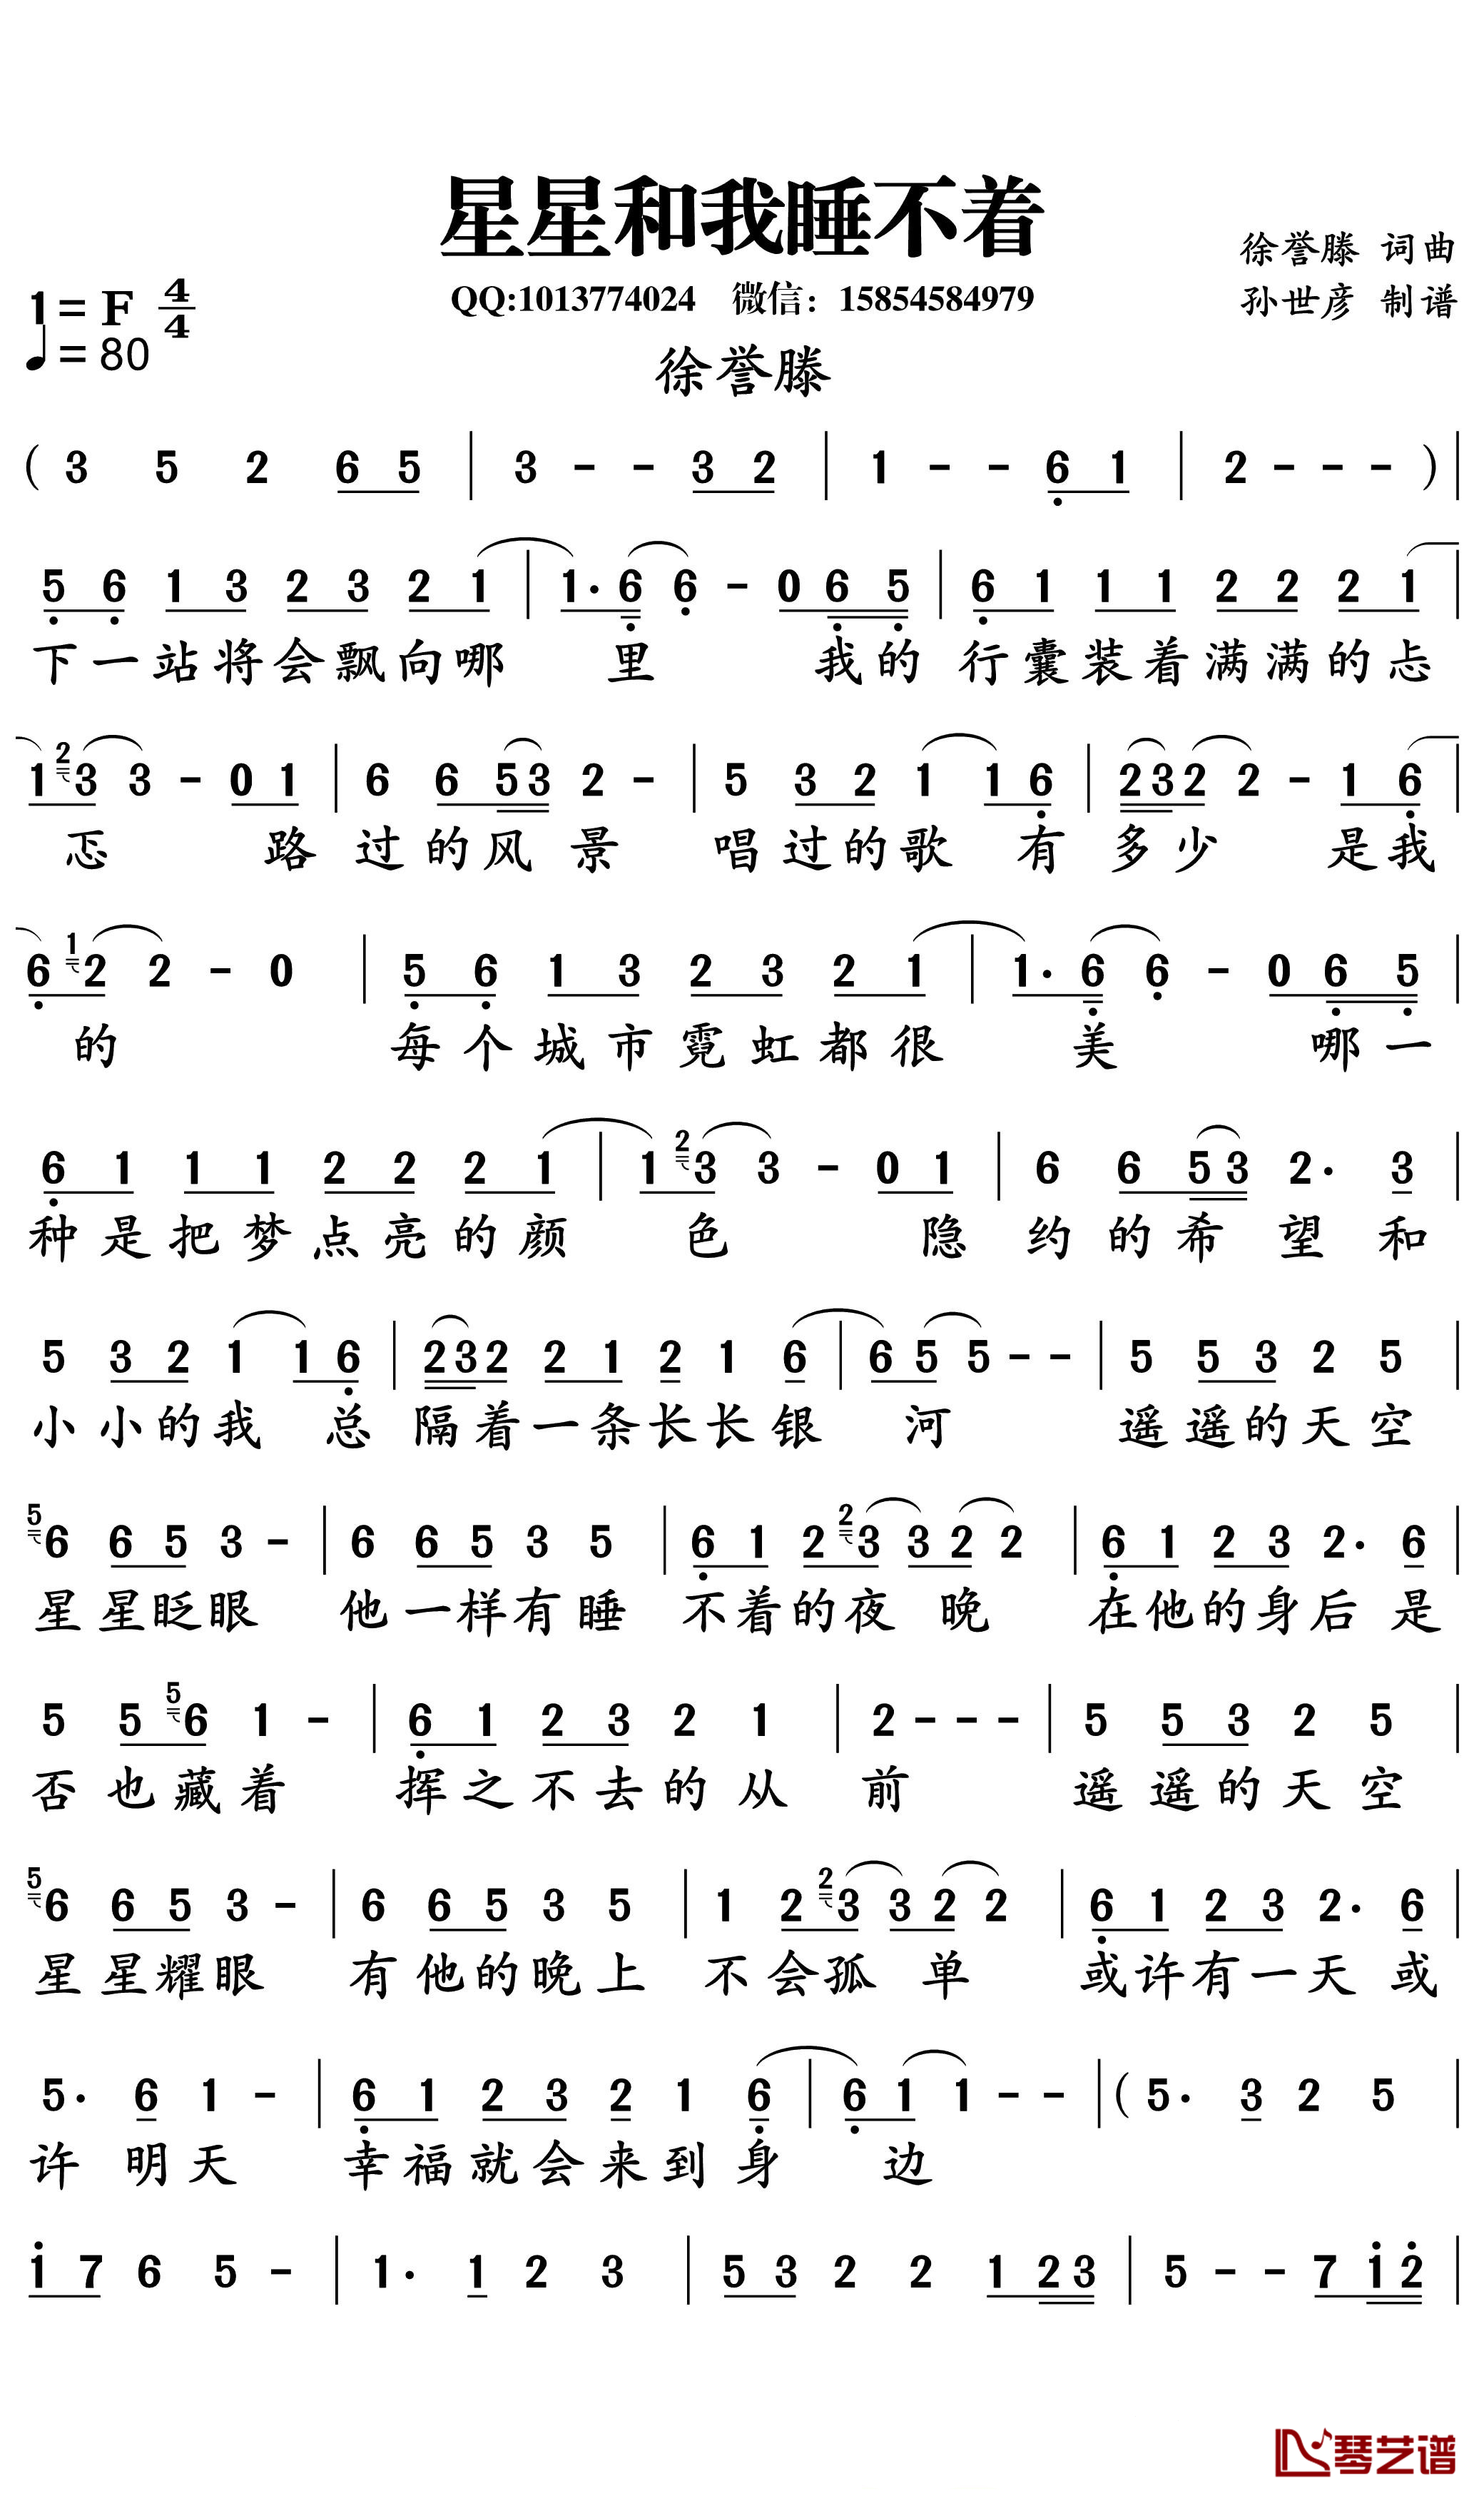 星星和我睡不着
徐誉滕 词曲
1=F 4/4
QQ:1013774024 微信：15854584979
孙世彦 制谱
♩=80
徐誉滕
( 3 5 2 6 5 | 3 - - 3 2 | 1 - - 6̣ 1 | 2 - - - ) |
5̣ 6̣ 1 3 2 3 2 1 | 1· 6̣ 6̣ - 0 6̣ 5̣ | 6̣ 1 1 1 2 2 2 1 |
下一站将会飘向哪 里 我的 行囊装着满满的忐
1 2 3 3 - 0 1 | 6 6 5 3 2 - | 5 3 2 1 1 6̣ | 2 3 2 2 - 1 6̣ |
忑 路 过的风景 唱过的歌 有 多少 是我
6̣ 1 2 2 - 0 | 5̣ 6̣ 1 3 2 3 2 1 | 1· 6̣ 6̣ - 0 6̣ 5̣ |
的 每个城市霓虹都很 美 哪一
6̣ 1 1 1 2 2 2 1 | 1 2 3 3 - 0 1 | 6 6 5 3 2· 3 |
种是把梦点亮的颜 色 隐 约的希望和
5 3 2 1 1 6̣ | 2 3 2 2 1 2 1 6 | 6 5 5 - - | 5 5 3 2 5 |
小小的我 总 隔着一条长长银 河 遥遥的天空
5 6 6 5 3 - | 6 6 5 3 5 | 6̣ 1 2 2 3 3 2 2 | 6̣ 1 2 3 2· 6 |
星星眨眼 他一样有睡 不着的夜 晚 在他的身后是
5 5 5 6 1 - | 6̣ 1 2 3 2 1 | 2 - - - | 5 5 3 2 5 |
否也藏着 挥之不去的从 前 遥遥的天空
5 6 6 5 3 - | 6 6 5 3 5 | 1 2 2 3 3 2 2 | 6̣ 1 2 3 2· 6 |
星星耀眼 有他的晚上 不会孤 单 或许有一天或
5· 6 1 - | 6̣ 1 2 3 2 1 6̣ | 6̣ 1 1 - - | ( 5· 3 2 5 |
许 明天 幸福就会来到身 边
1̇ 7 6 5 - | 1· 1 2 3 | 5 3 2 2 1 2 3 | 5 - - 7 1̇ 2̇ |
琴艺谱